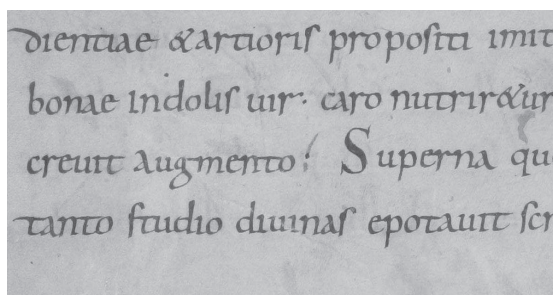 dientiae &artioris propositi imit
bonae indolis uir· caro nutrir&ur
creuit augmento! Superna qu
tanto studio diuinas epotauit scr